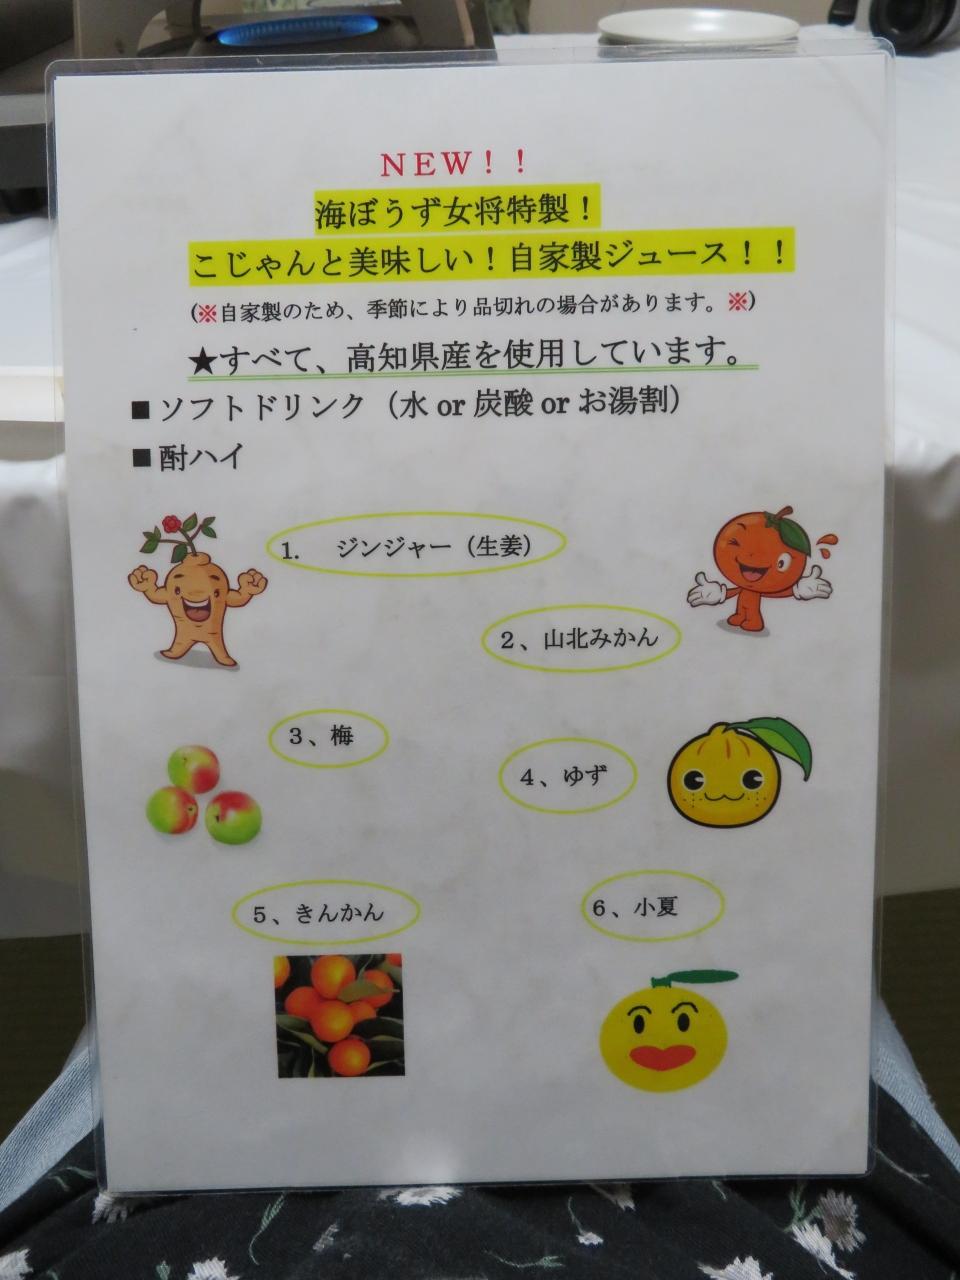 ＮＥＷ！！
海ぼうず女将特製！
こじゃんと美味しい！自家製ジュース！！
(※自家製のため、季節により品切れの場合があります。※)
★すべて、高知県産を使用しています。
■ソフトドリンク（水 or 炭酸 or お湯割）
■酎ハイ
1. ジンジャー（生姜）
２、山北みかん
３、梅
４、ゆず
５、きんかん
６、小夏